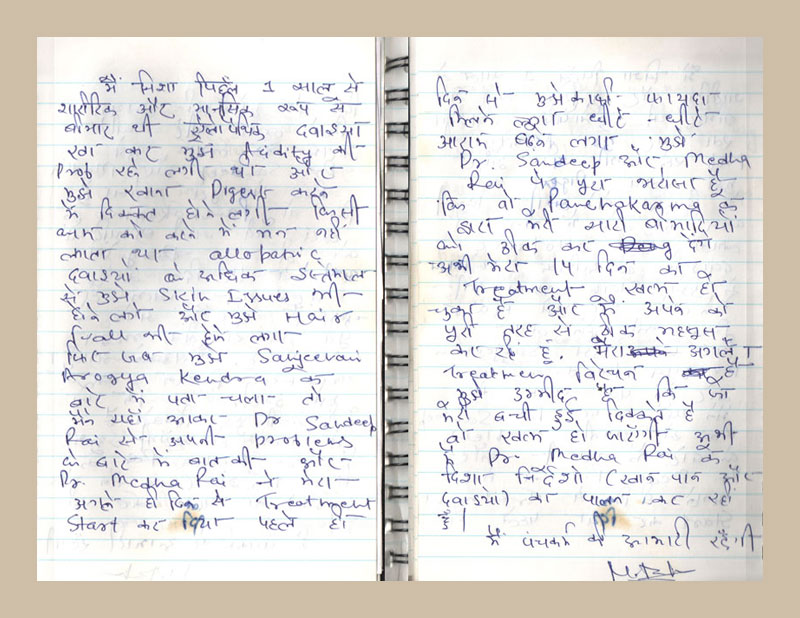 मैं निशा पिछले 1 साल से
शारीरिक और मानसिक रूप से
बीमार थी एलोपैथिक दवाइयां
खा कर मुझे Acidity की
Prob रहने लगी थी और
मुझे खाना Digest करने
में दिक्कत होने लगी किसी
काम को करने में मन नहीं
लगता था allopathic
दवाइयों के अधिक इस्तेमाल
से मुझे Skin Issues भी
होने लगे और मुझे Hair
fall भी होने लगा
फिर जब मुझे Sanjeevani
Arogya Kendra के
बारे में पता चला तो
मैंने यहाँ आकर Dr Sandeep
Rai से अपनी problems
के बारे में बात की और
Dr. Medha Rai ने मेरा
अगले ही दिन से Treatment
Start कर दिया पहले ही
दिन से मुझे काफी फायदा
मिलने लगा धीरे धीरे
आराम लगा मुझे
Dr. Sandeep और Medha
Rai पे पूरा भरोसा है
कि वो Panchakarma के
द्वारा मेरी सारी बीमारियों
को ठीक कर देंगे
अभी मेरा 14 दिन का
Treatment खत्म हो
चुका है और मैं अपने को
पूरी तरह से ठीक महसूस
कर रही हूं. मेरा अगला
Treatment विरेचन है
मुझे उम्मीद है कि जो
मेरी बची हुई दिक्कतें हैं
वो खत्म हो जाएंगी अभी
मैं Dr. Medha Rai के
दिशा निर्देशों (खान पान और
दवाइयां) का पालन कर रही
हूँ।
मैं पंचकर्म की आभारी रहूँगी